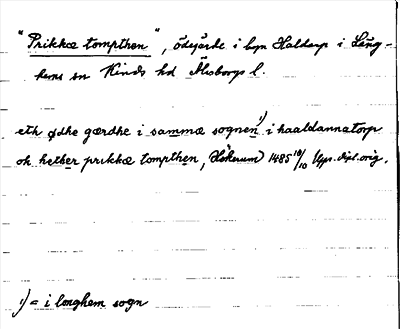 "Prikkæ tompthen", ödegärde i byn Haldarp i Läng-
hems sn Kinds hd Älvsborgs l.
eth ødhe gærdhe i sammæ sognen 1) i haaldannatorp
ok hether prikkæ tompthen, (Hökerum) 1485 18/10 Upps. dipl. orig.
1) = i longhem sogn